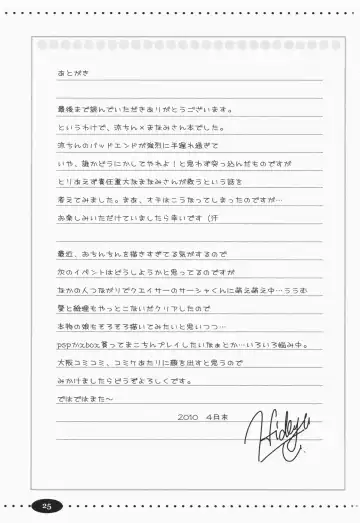 あとがき
最後まで読んでいただきありがとうございます。
というわけで、流ちん×まなみさん本でした。
流ちんのバッドエンドが強烈に手遅れ過ぎて
いや、誰かどうにかしてやれよ!と思わず突っ込んだものですが
とりあえず責任重大なまなみさんが救うという話を
考えてみました。まあ、オチはこうなってしまったのですが…
お楽しみいただけていましたら幸いです(汗
最近、おちんちんを描きすぎてる気がするので
次のイベントはどうしようかと思ってるのですが
なかの人つながりでクエイサーのサーシャくんに萌え萌え中…ううむ
警と絵理もやっとこないだクリアしたので
本物の娘もそろそろ描いてみたいと思いつつ…
pspかxbox買ってまこちんプレイしたいなぁとか…いろいろ悩み中。
大阪コミコミ、コミケあたりに顔を出すと思うので
みかけましたらどうぞよろしくです。
ではではまた～
2010 4月末
25